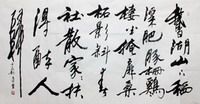 鵝湖山下稻
粱肥豚柵鷄
棲半掩扉桑
柘影斜春
社散家々扶
得醉人
歸